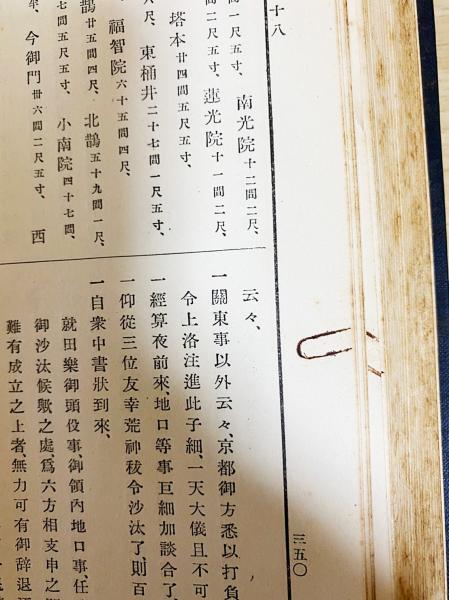 十八
間一尺五寸、南光院十二間二尺、
間二尺五寸、蓮光院十一間二尺、
塔本廿四間五尺五寸、
尺、東桶井二十七間一尺五寸、
福智院六十五間四尺、
鵲廿五間四尺、北鵲五十九間一尺、
七間五尺五寸、小南院四十七間、
今御門卅六間二尺五寸、西
云々、
一關東事以外云々、京都御方悉以打負
令上洛注進此子細、一天大儀且不可
一經算夜前來、地口等事巨細加談合了、
一仰從三位友幸荒神秡令沙汰了則百
一自衆中書狀到來、
就田樂御頭役事御領內地口事、任
御沙汰候歟之處、爲六方相支申之
難有成立之上者、無力可有御辭退
三五〇